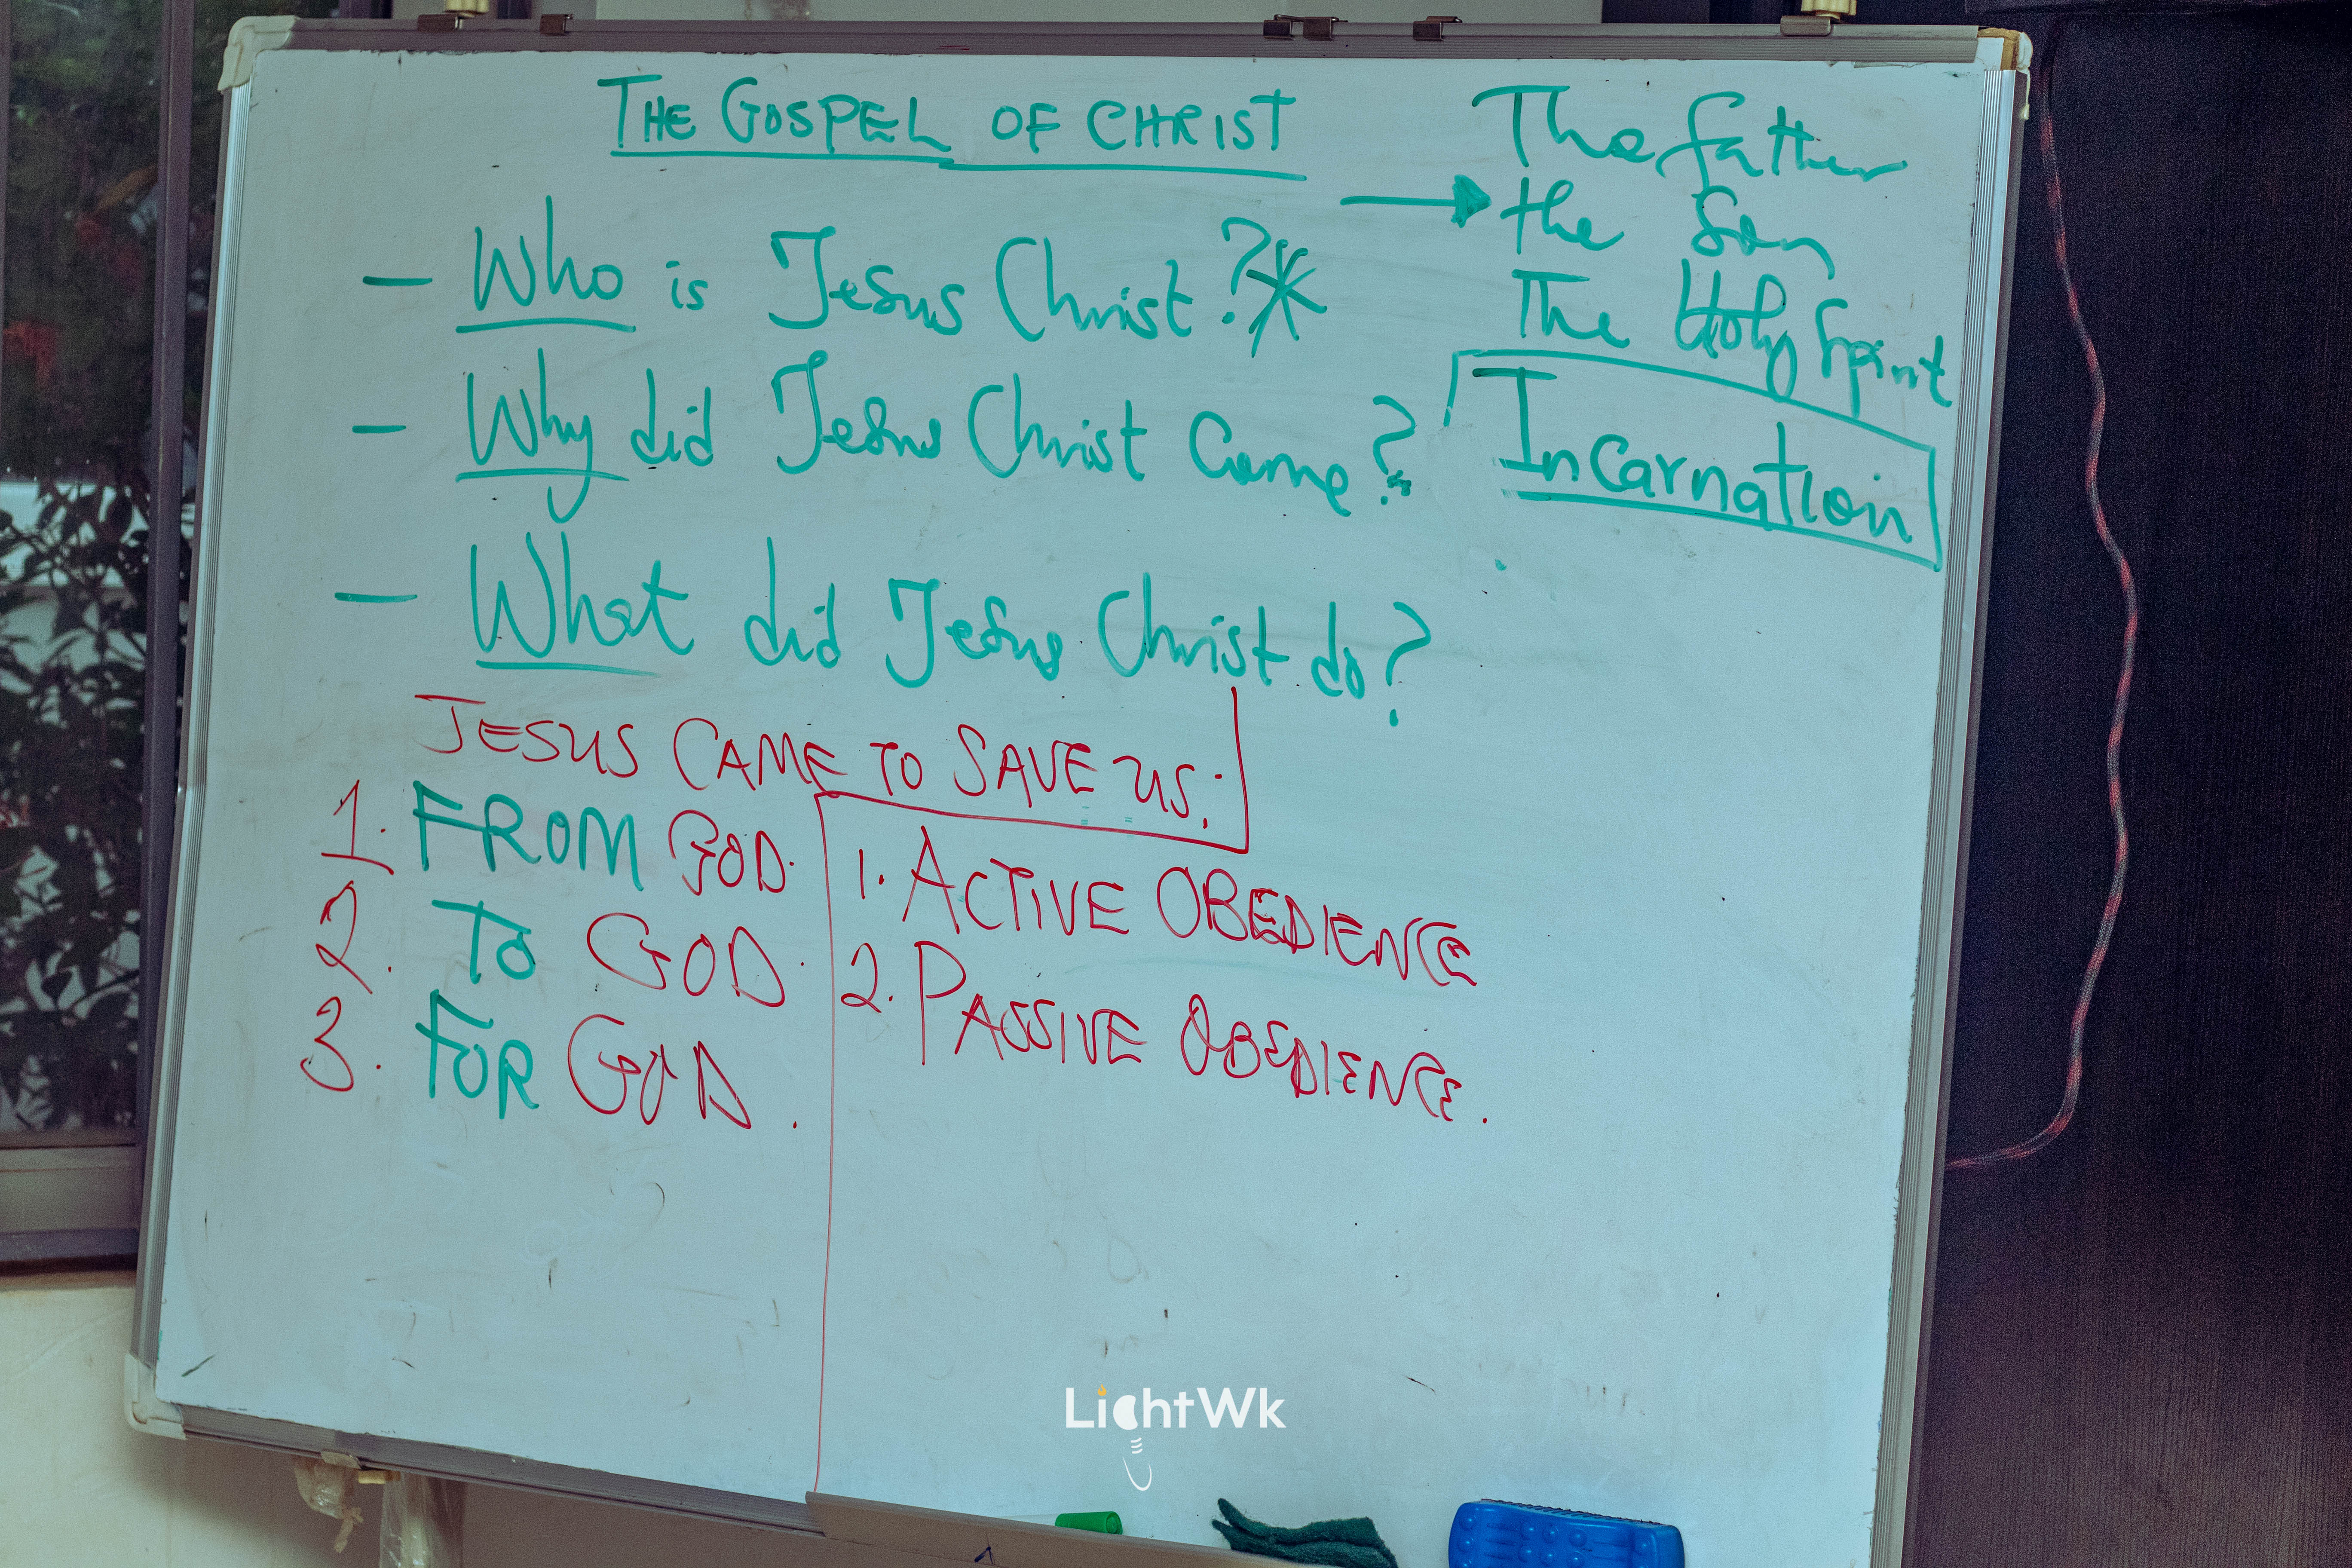 THE GOSPEL OF CHRIST
— Who is Jesus Christ?*
— Why did Jesus Christ Come?
— What did Jesus Christ do?
→ The father
the Son
The Holy Spirit
Incarnation
JESUS CAME TO SAVE US:
1. FROM GOD.
2. TO GOD.
3. FOR GOD.
1. ACTIVE OBEDIENCE
2. PASSIVE OBEDIENCE.
LightWk